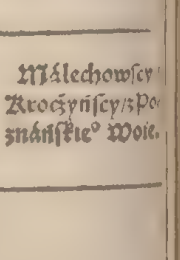 Málechowſcy
Kroczyńſcy/z Po
znáńſkieº Woie.